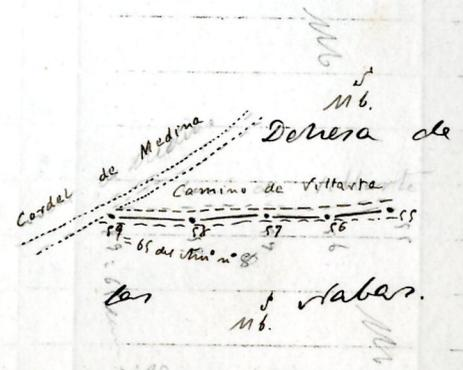 Mb.
Dehesa de
Cordel de Medina
Camino de Villarta
59 58 57 56 55
= 65 del itin° n° 8
las Nabas.
Mb.